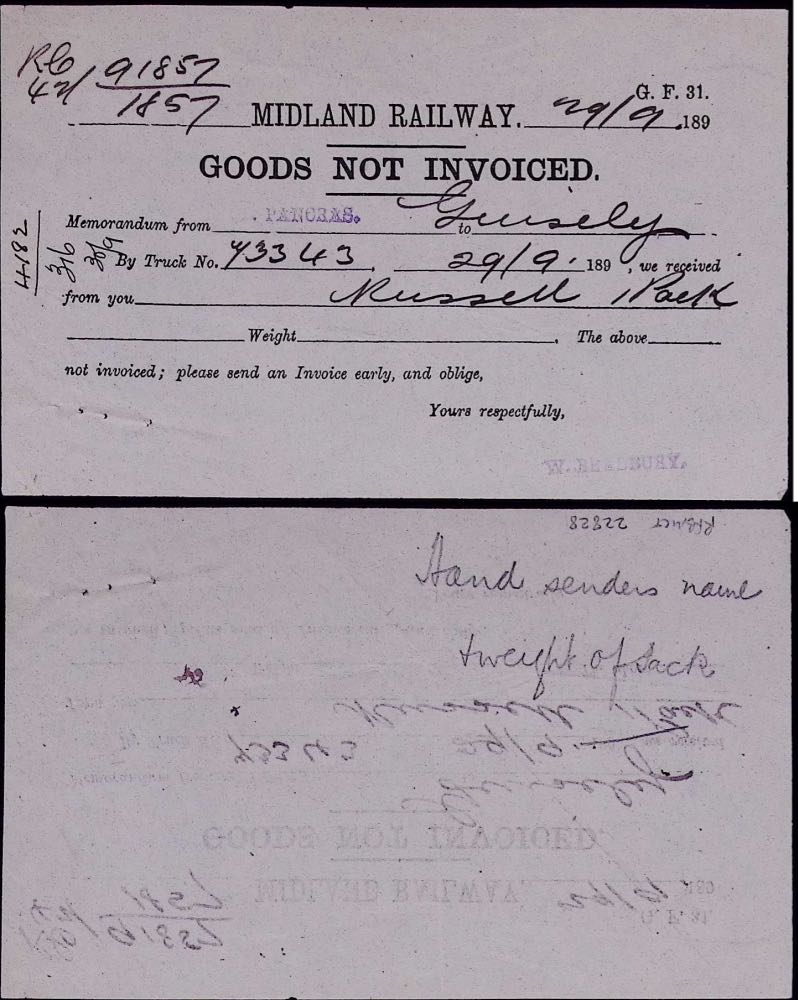 91857
1857
G. F. 31.
MIDLAND RAILWAY. 29/9 189
GOODS NOT INVOICED.
Memorandum from PANCRAS. to Guisely
By Truck No. 43343, 29/9. 189 , we received
from you Russell 1 Pack
Weight . The above
not invoiced; please send an Invoice early, and oblige,
Yours respectfully,
W. BRADBURY.
4182
3/6
30/9
22828
Hand senders name
+ weight of Sack